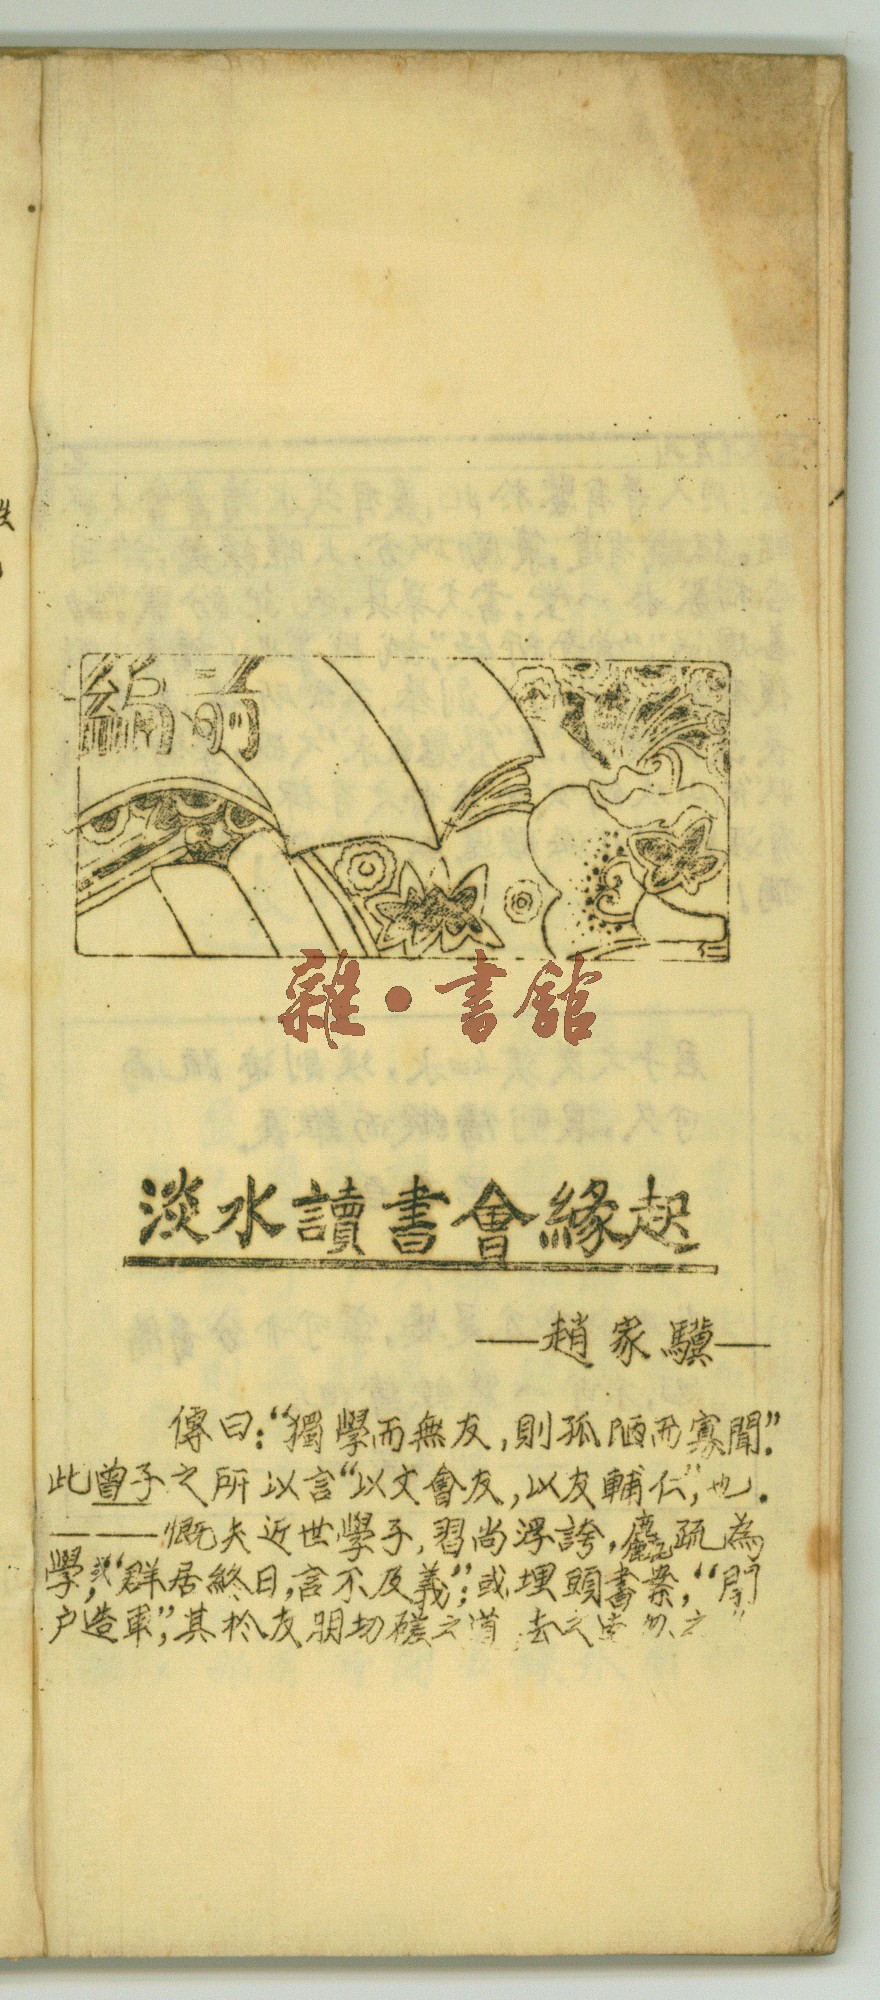 編前
仁
雜·書館
淡水讀書會緣起
——趙家驥——
傳曰：“獨學而無友，則孤陋而寡聞”.
此曾子之所以言“以文會友，以友輔仁”，也.
———慨夫近世學子，習尚浮誇，麤疏為
學，或“群居終日，言不及義”；或埋頭書案，“閉
户造車”，其於友朋切磋之道 去之 之